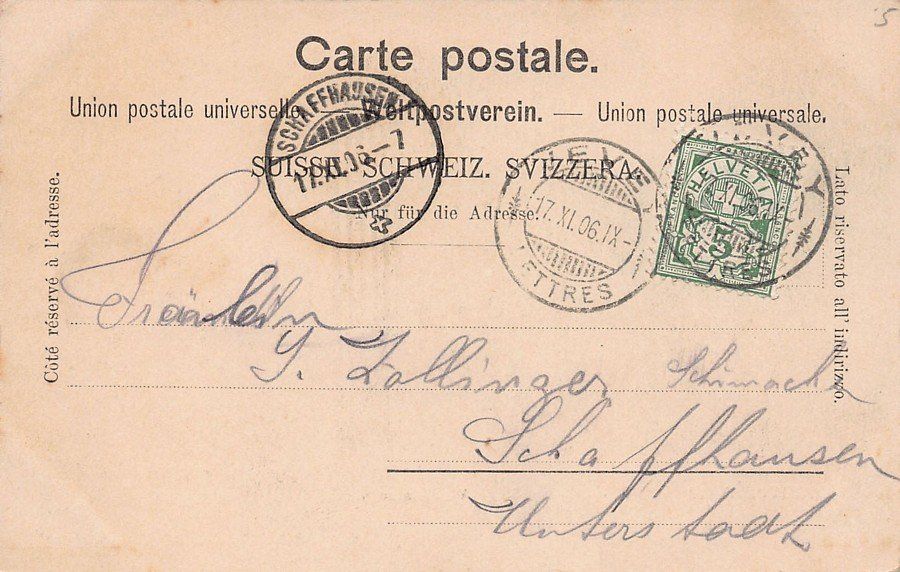 5
Carte postale.
Union postale universelle. — Weltpostverein. — Union postale universale.
SUISSE. SCHWEIZ. SVIZZERA.
Nur für die Adresse.
Côté réservé à l'adresse.
Lato riservato all' indirizzo.
SCHAFFHAUSEN
17.XI.06-7
VEVEY
17.XI.06.IX-
LETTRES
VEVEY
HELVETIA
5
Fräulein
Zollinger
Schaffhausen
Unterstadt